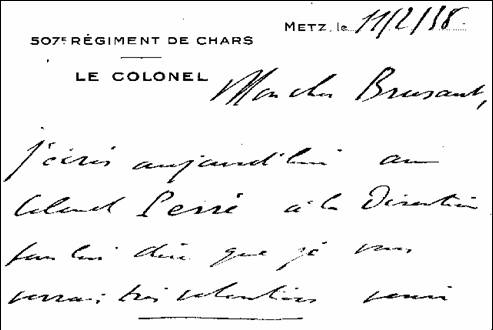 METZ, le 11/2/38
507E RÉGIMENT DE CHARS
LE COLONEL
Mon cher Brusaut,
J'écris aujourd'hui au
Colonel Perré à la Direction
pour lui dire que je vous
verrais très volontiers venir